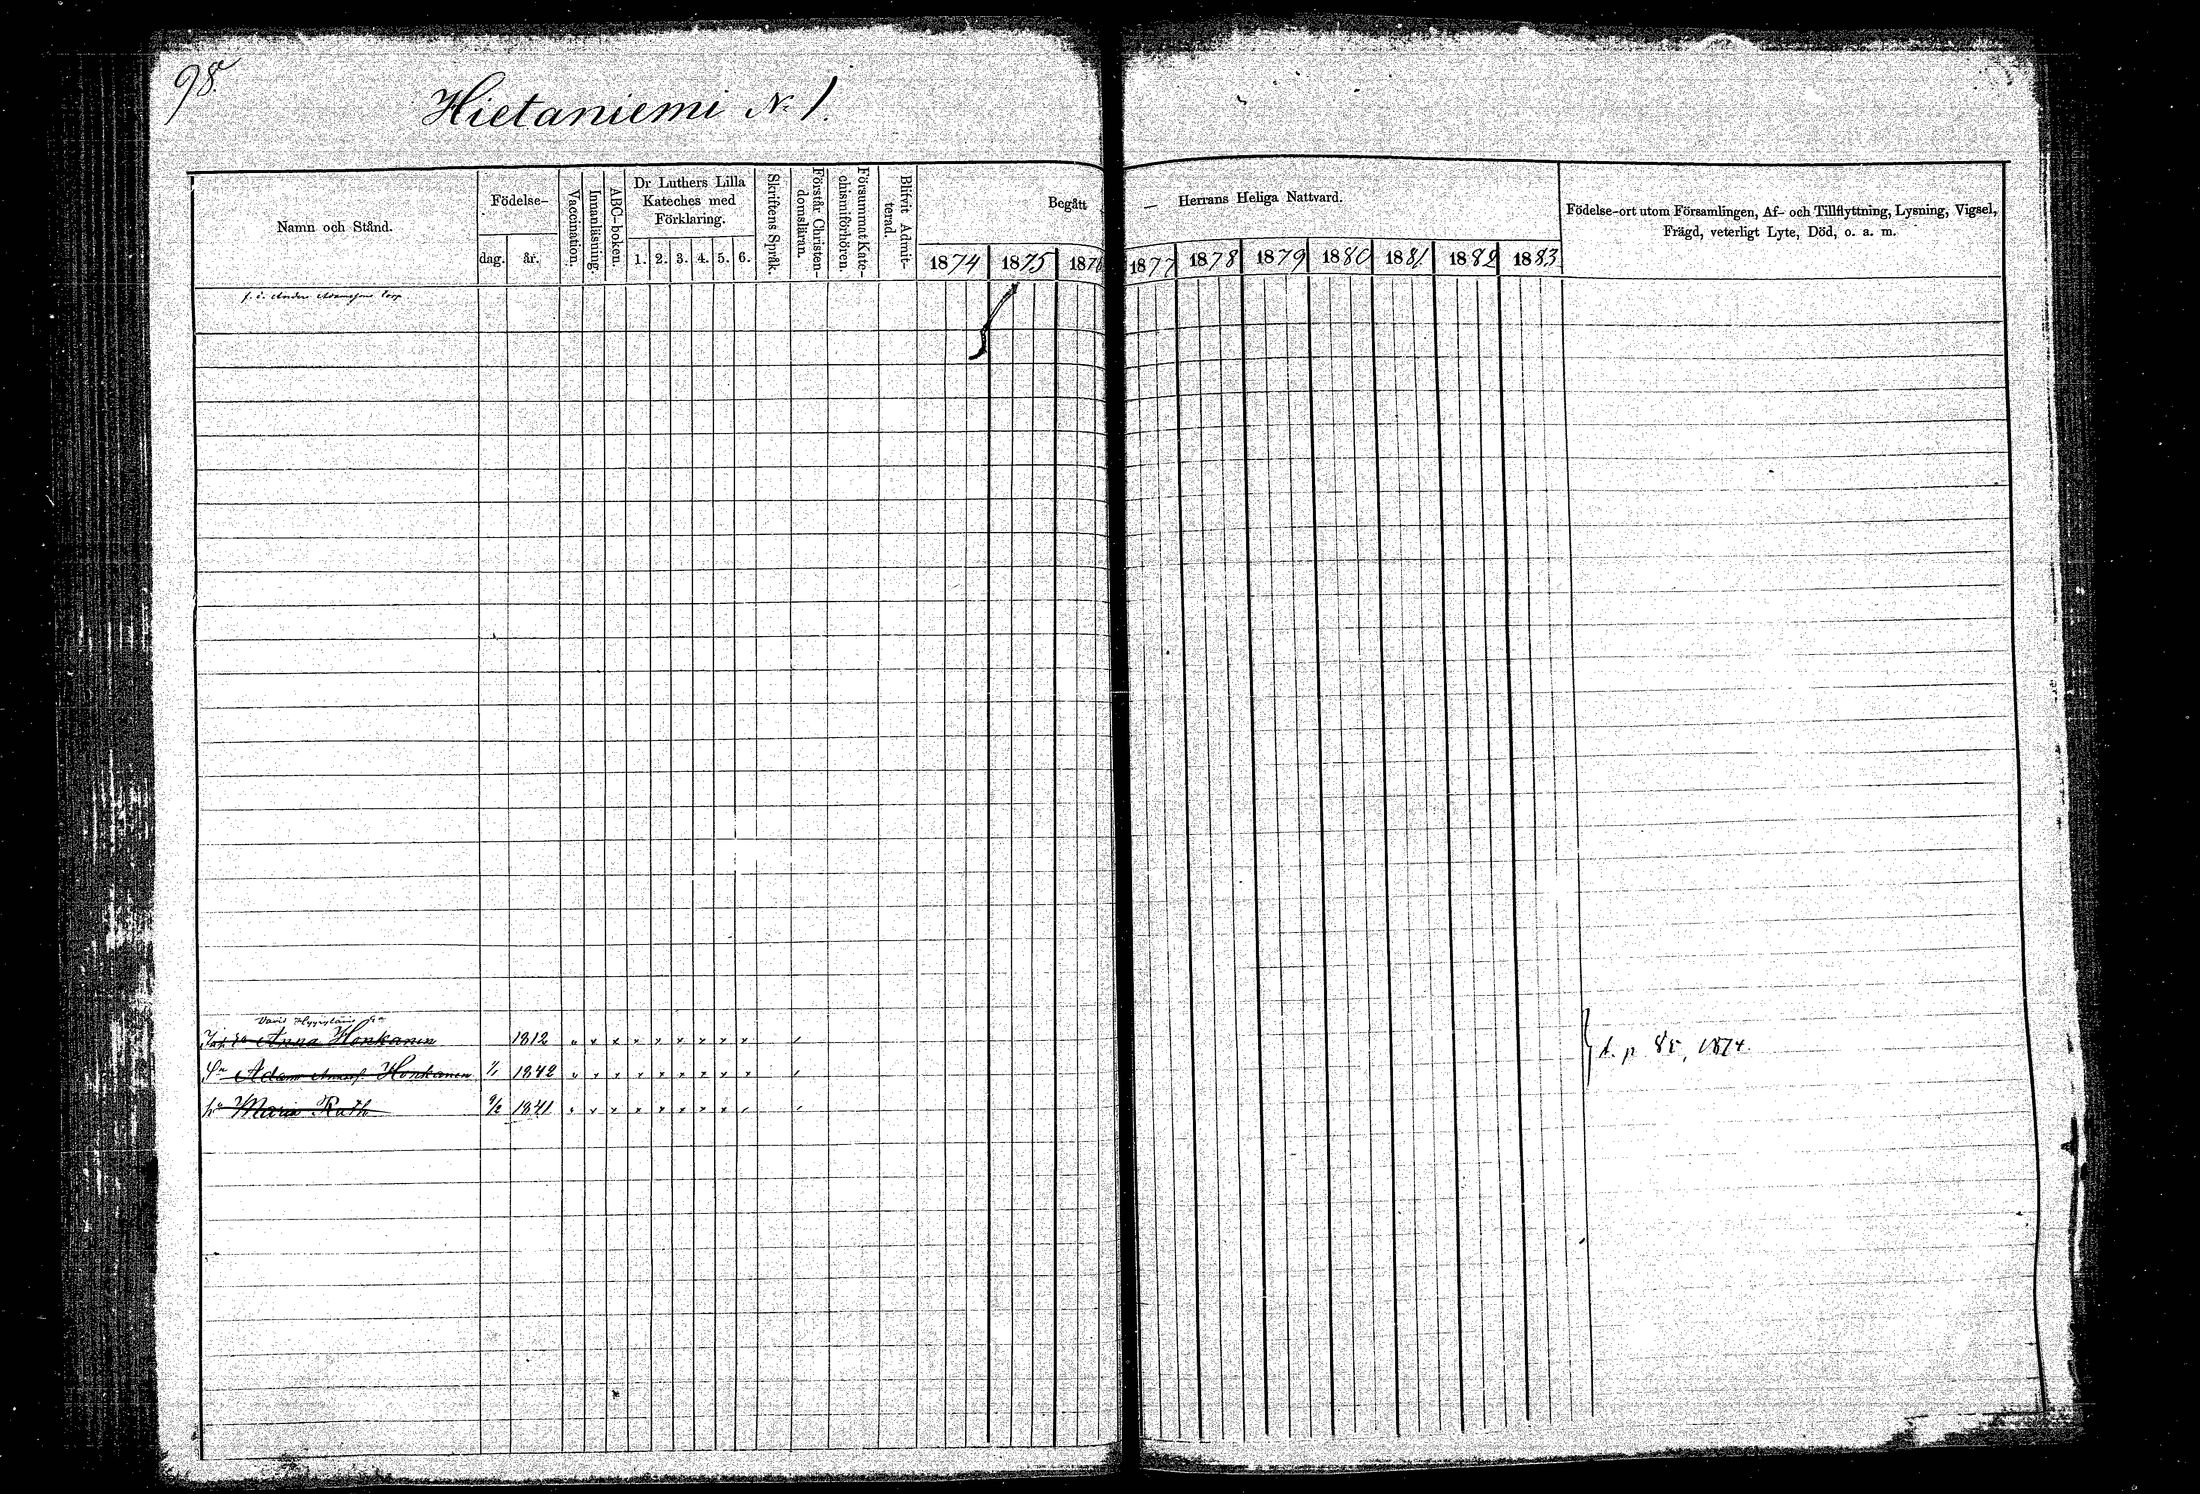 98.
Hietaniemi N:o 1.
Namn och Stånd.
Födelse-
dag.
år.
Vaccination.
Innanläsning.
ABC-boken.
Dr Luthers Lilla
Kateches med
Förklaring.
1. 2. 3. 4. 5. 6.
Skriftens Språk.
Förstår Christen-
domsläran.
Försummat Kate-
chismiförhören.
Blifvit Admit-
terad.
Begått
— Herrans Heliga Nattvard.
1874 1875 1876 1877 1878 1879 1880 1881 1882 1883
Födelse-ort utom Församlingen, Af- och Tillflyttning, Lysning, Vigsel,
Frägd, veterligt Lyte, Död, o. a. m.
Anders Adamsons Torp
David
Anna Honkanen 1812
Sn Adam Honkanen 1/1 1842
hu Maria Ruth 9/2 1841
p 85, 1874.